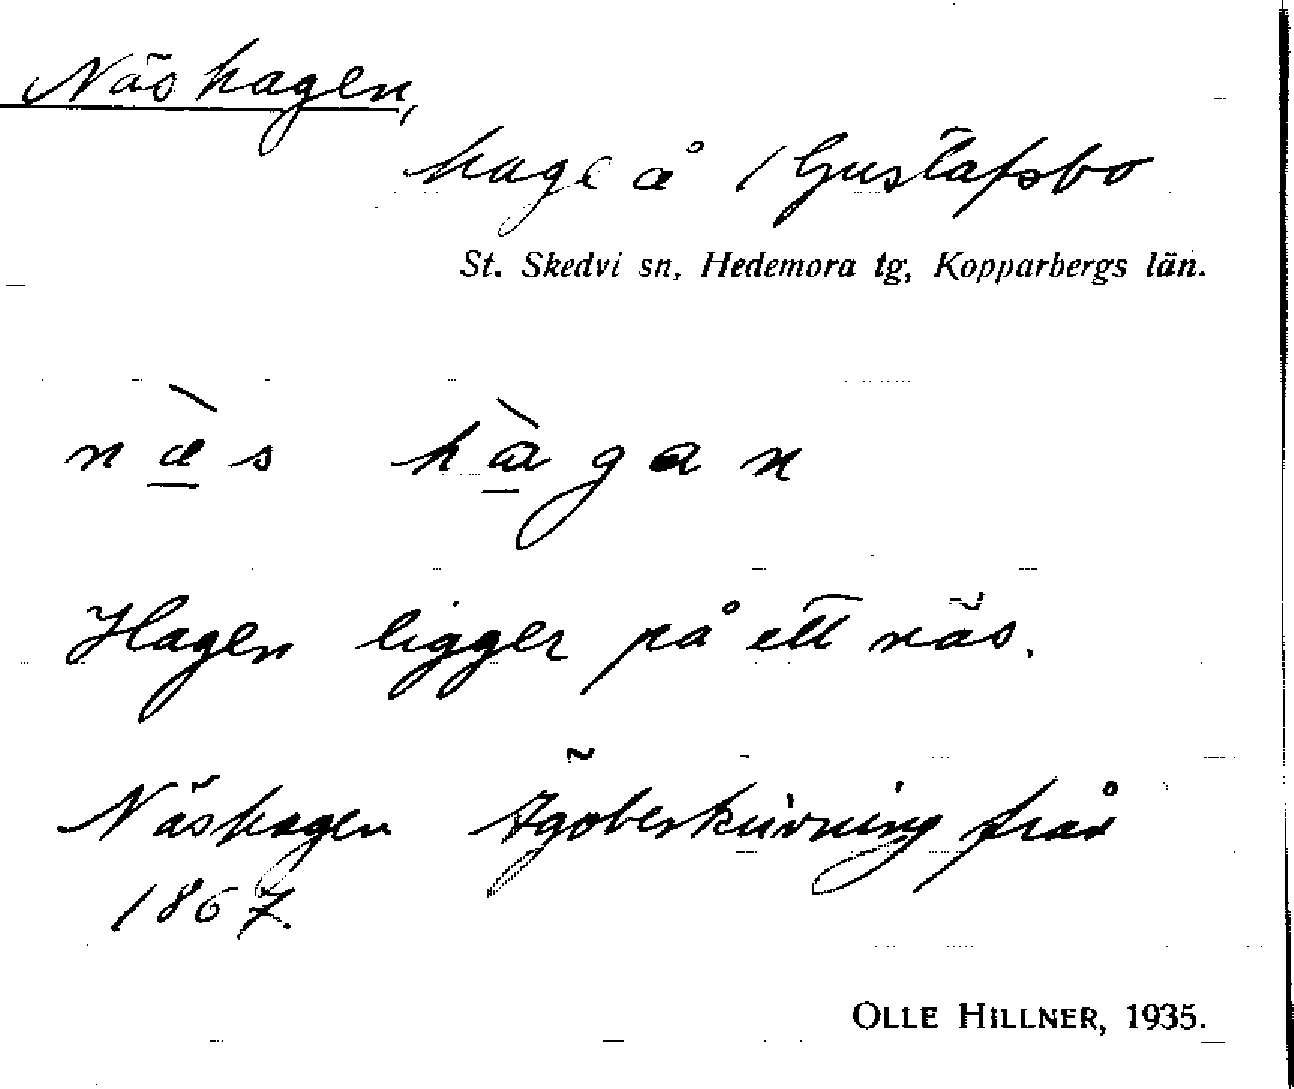 Näshagen,
hage å 1 Gustafsbo
St. Skedvi sn, Hedemora tg, Kopparbergs län.
næ̀s hàgan
Hagen ligger på ett näs.
Näshagen Ägobeskrivning från
1867.
OLLE HILLNER, 1935.